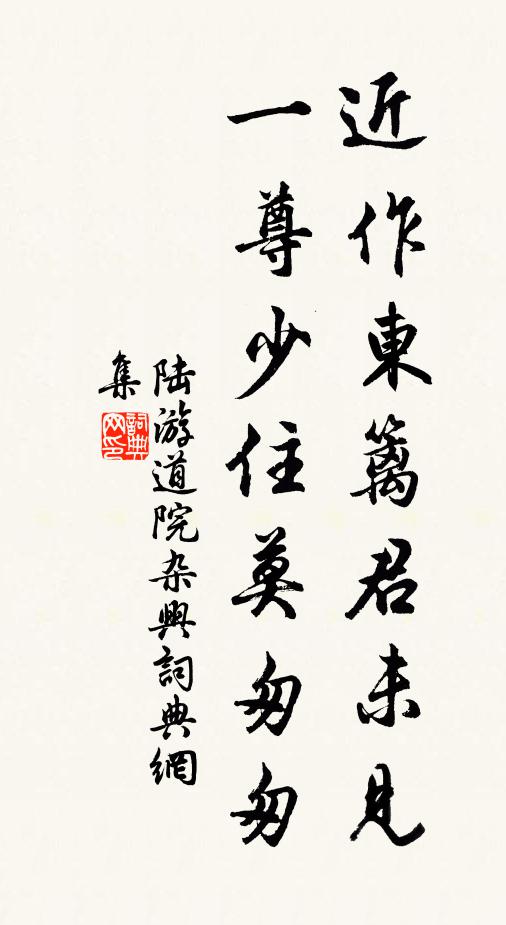 近作東籬君未見
一尊少住莫匆匆
陆游道院杂興詞典網
集
詞典网印